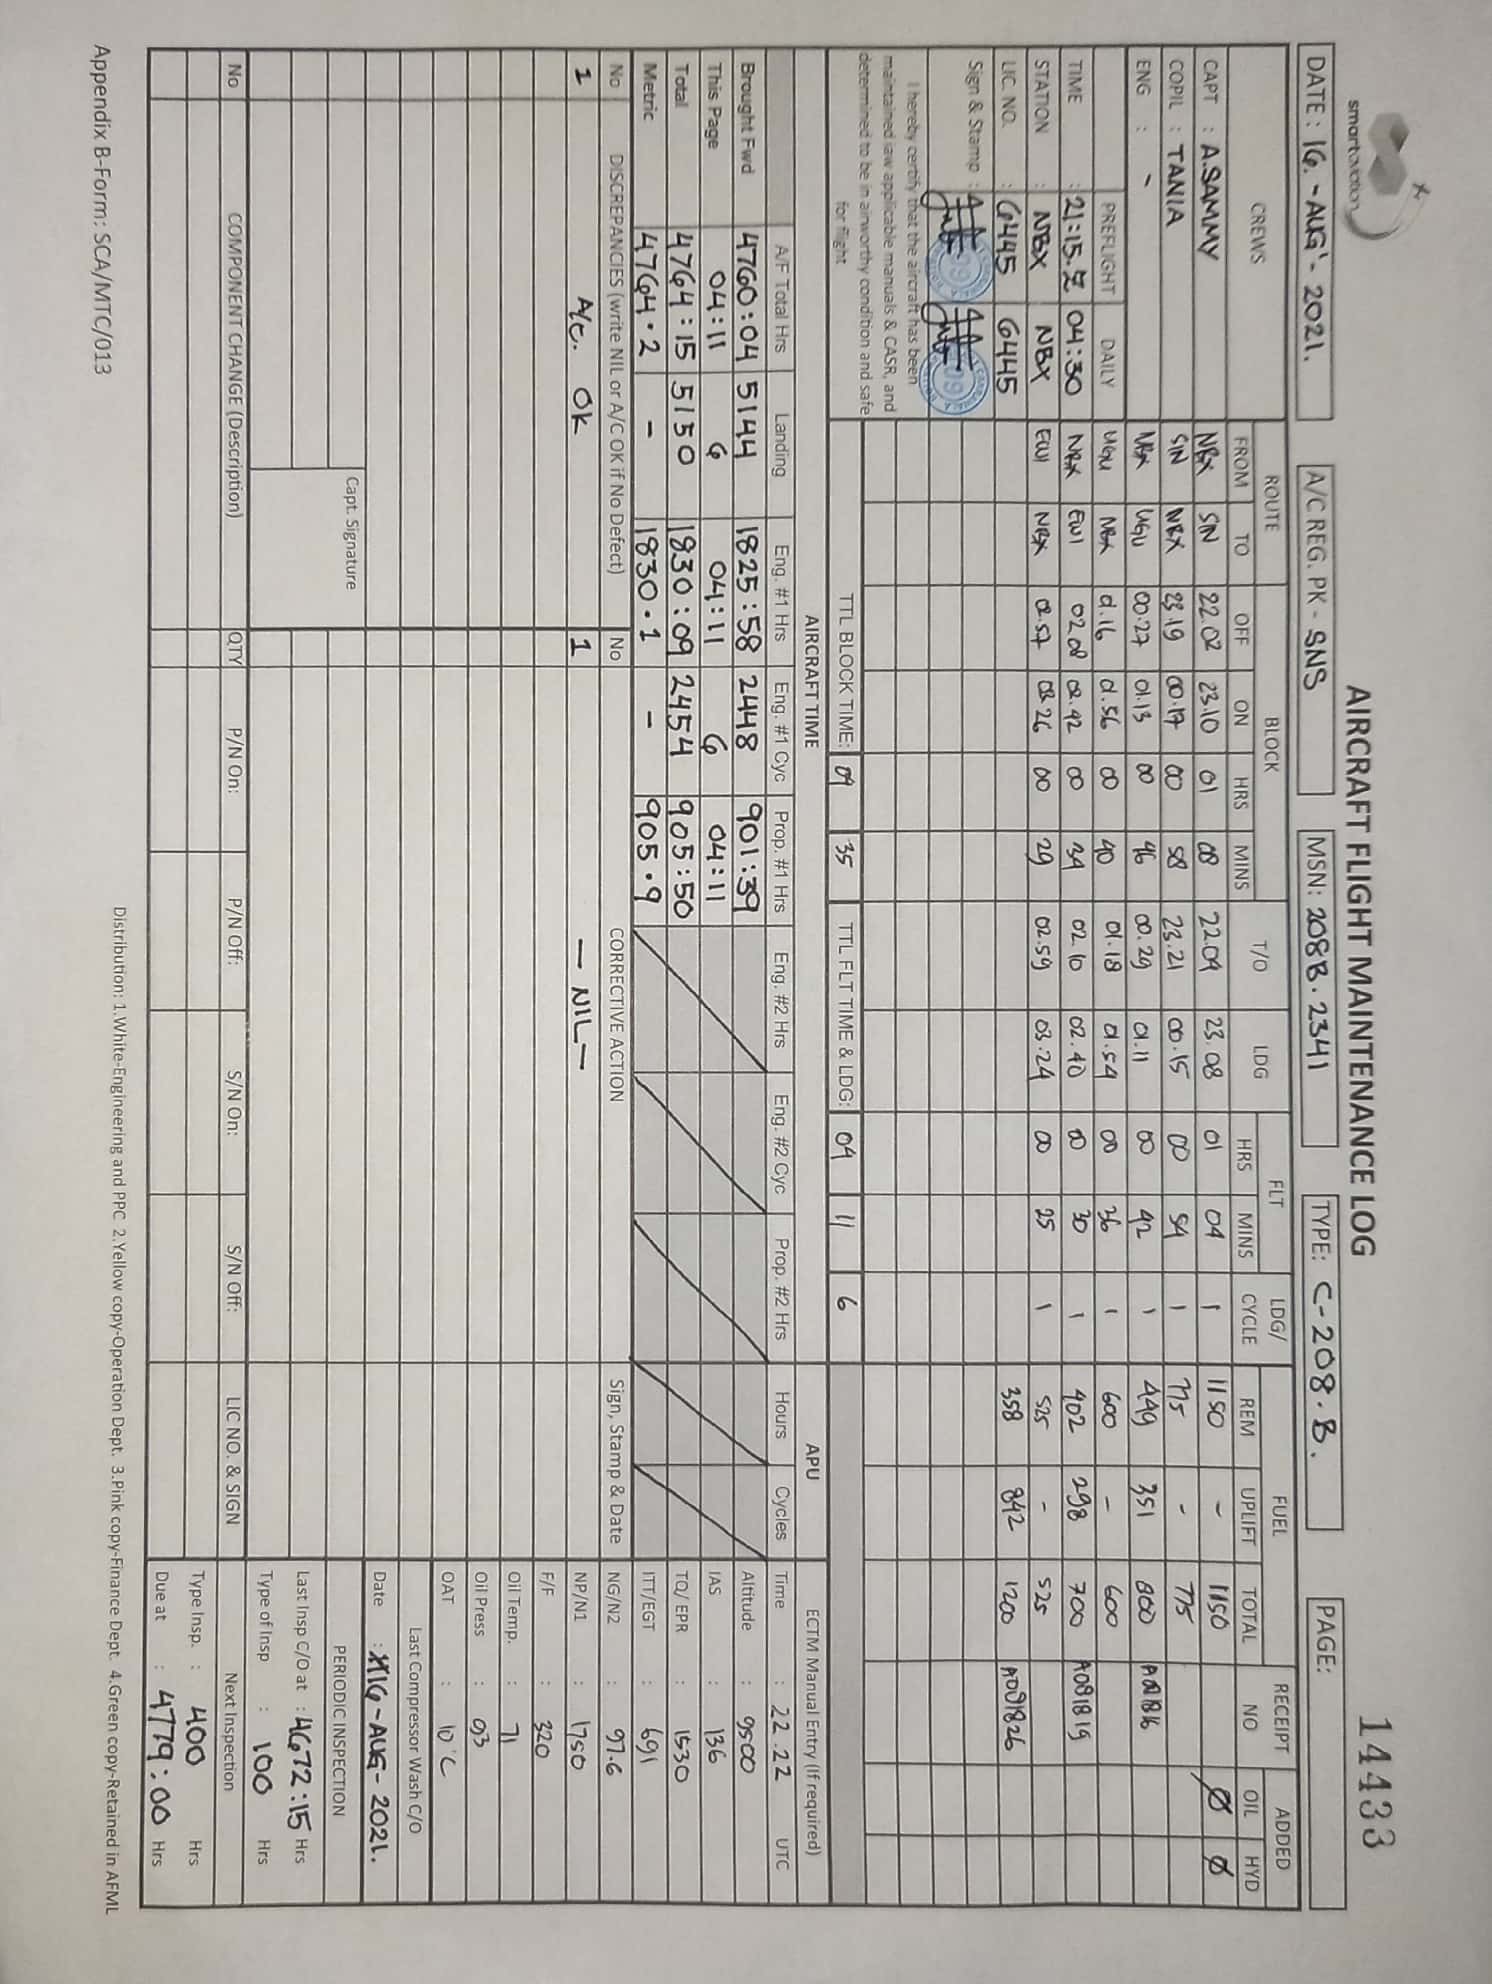 smartaviation
AIRCRAFT FLIGHT MAINTENANCE LOG
14433
DATE : 16.-AUG'-2021. A/C REG. PK - SNS MSN: 208B.2341 TYPE: C-208.B. PAGE:
CREWS ROUTE BLOCK T/O LDG FLT LDG/ CYCLE FUEL RECEIPT NO ADDED
FROM TO OFF ON HRS MINS HRS MINS REM UPLIFT TOTAL OIL HYD
CAPT : A.SAMMY NBX SIN 22.02 23.10 01 08 22.04 23.08 01 04 1 1150 - 1150 Ø Ø
COPIL : TANIA SIN NBX 23.19 00.17 00 58 23.21 00.15 00 54 1 775 - 775
ENG : - NBX UGU 00.27 01.13 00 46 00.29 01.11 00 42 1 449 351 800
PREFLIGHT DAILY UGU NBX 01.16 01.56 00 40 01.18 01.54 00 36 1 600 - 600
TIME : 21:15.Z 04:30 NBX EWI 02.08 02.42 00 34 02.10 02.40 00 30 1 402 298 700 A0081819
STATION : NBX NBX EWI NBX 02.57 03.26 00 29 02.59 03.24 00 25 1 525 - 525
LIC. NO. : 6445 6445 358 842 1200 A0081826
Sign & Stamp :
I hereby certify that the aircraft has been
maintained iaw applicable manuals & CASR, and
determined to be in airworthy condition and safe
for flight
TTL BLOCK TIME: 04 35 TTL FLT TIME & LDG: 04 11 6
AIRCRAFT TIME APU ECTM Manual Entry (If required)
A/F Total Hrs Landing Eng. #1 Hrs Eng. #1 Cyc Prop. #1 Hrs Eng. #2 Hrs Eng. #2 Cyc Prop. #2 Hrs Hours Cycles Time : 22.22 UTC
Brought Fwd 4760:04 5144 1825:58 2448 901:39 Altitude : 9500
This Page 04:11 6 04:11 6 04:11 IAS : 136
Total 4764:15 5150 1830:09 2454 905:50 TQ/ EPR : 1530
Metric 4764.2 - 1830.1 - 905.9 ITT/EGT : 691
No DISCREPANCIES (write NIL or A/C OK if No Defect) No CORRECTIVE ACTION Sign, Stamp & Date NG/N2 : 97.6
1 A/c. OK 1 - NIL - NP/N1 : 1750
F/F : 320
Oil Temp. : 71
Oil Press : 93
OAT : 10°C
Last Compressor Wash C/O
Date : 16-AUG-2021.
Capt. Signature PERIODIC INSPECTION
Last Insp C/O at : 4672:15 Hrs
Type of Insp : 100 Hrs
No COMPONENT CHANGE (Description) QTY P/N On: P/N Off: S/N On: S/N Off: LIC NO. & SIGN Next Inspection
Type Insp. : 400 Hrs
Due at : 4779:00 Hrs
Distribution: 1.White-Engineering and PPC 2.Yellow copy-Operation Dept. 3.Pink copy-Finance Dept. 4.Green copy-Retained in AFML
Appendix B-Form: SCA/MTC/013